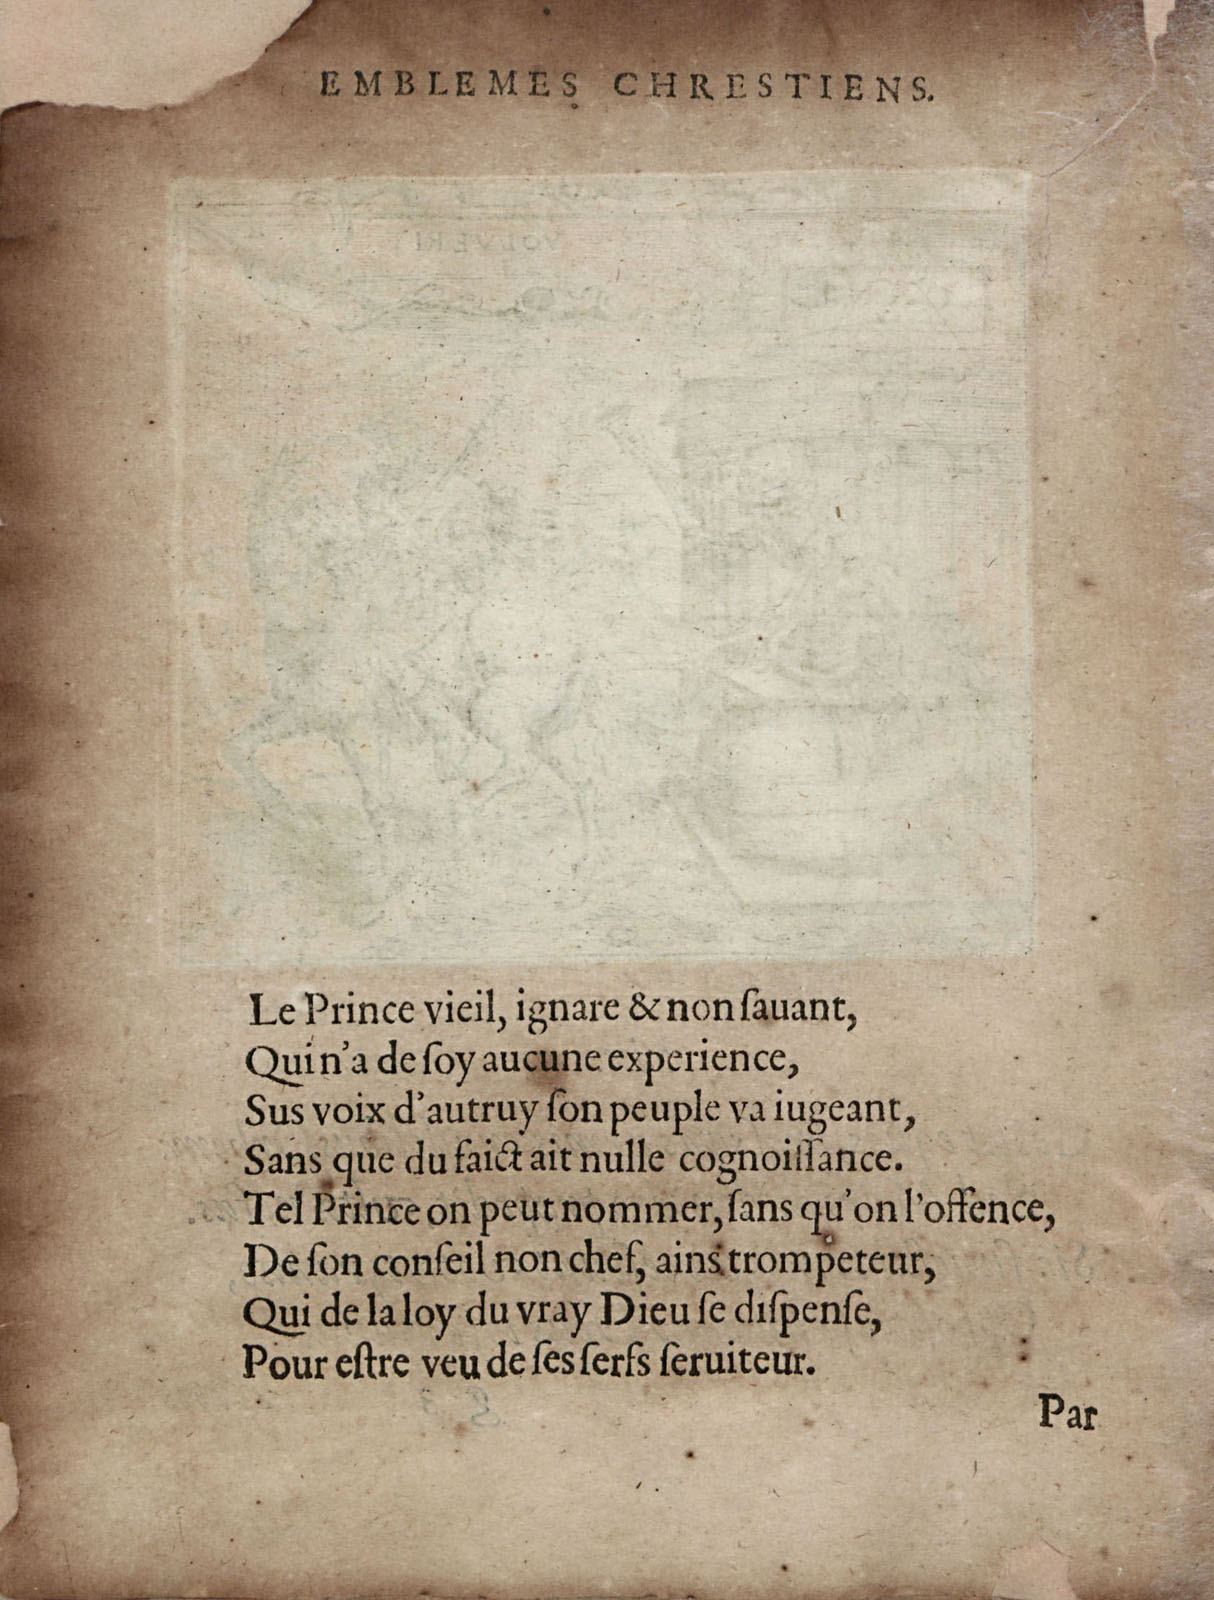 EMBLEMES CHRESTIENS.
Le Prince vieil, ignare & non ſauant,
Qui n'a de ſoy aucune experience,
Sus voix d'autruy ſon peuple va iugeant,
Sans que du faict ait nulle cognoiſſance.
Tel Prince on peut nommer, ſans qu'on l'offence,
De ſon conſeil non chef, ains trompeteur,
Qui de la loy du vray Dieu ſe diſpenſe,
Pour eſtre veu de ſes ſerfs ſeruiteur.
Par